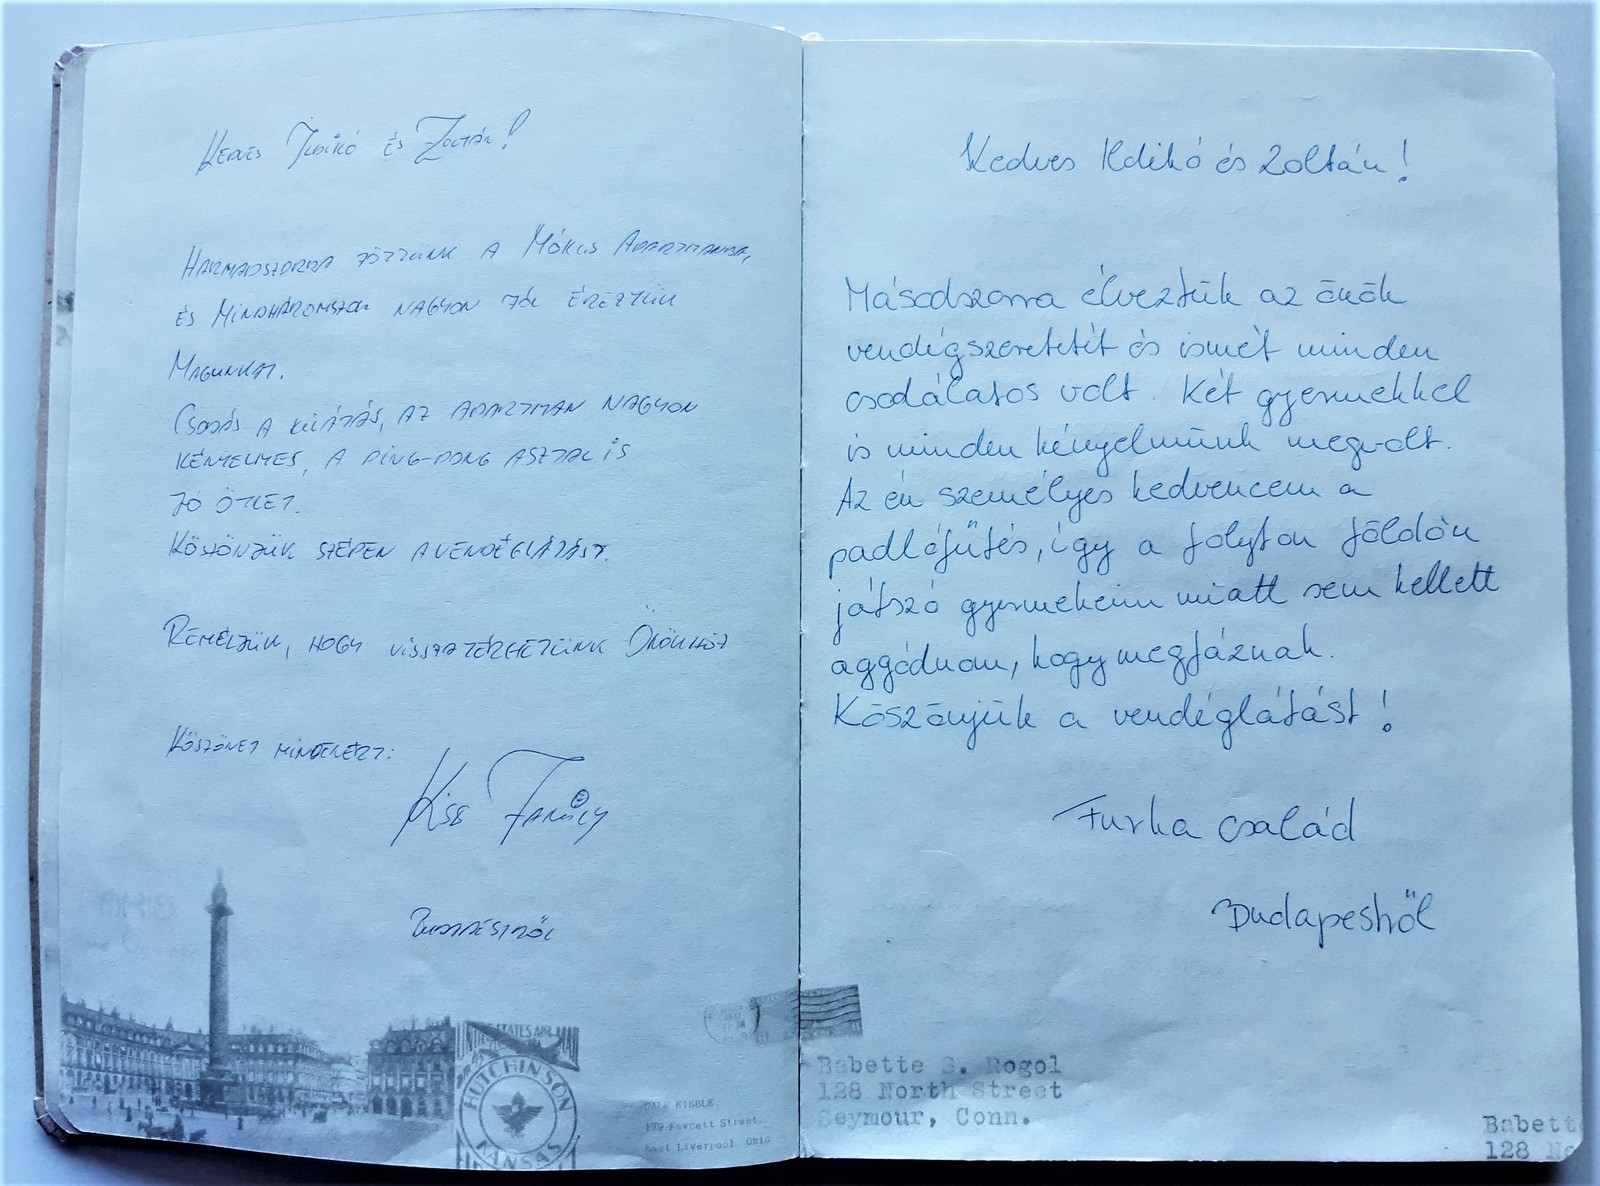 Kedves Ildikó és Zoltán!
Harmadszorra jöttünk a Mókus Apartmanba,
és mindháromszor nagyon jól éreztük
magunkat.
Csodás a kilátás, az apartman nagyon
kényelmes, a ping-pong asztal is
jó ötlet.
Köszönjük szépen a vendéglátást.
Reméljük, hogy visszatérhetünk Önökhöz
Köszönet mindenért:
Kiss Family
Budapestről
UNITED STATES AIR MAIL
HUTCHINSON
KANSAS
DALE KIBBLE,
179 Fawcett Street,
East Liverpool, Ohio
Kedves Ildikó és Zoltán!
Másodszorra élveztük az önök
vendégszeretetét és ismét minden
csodálatos volt. Két gyermekkel
is minden kényelmünk megvolt.
Az én személyes kedvencem a
padlófűtés, így a folyton földön
játszó gyermekeim miatt sem kellett
aggódnom, hogy megfáznak.
Köszönjük a vendéglátást!
Furka család
Budapestről
Babette S. Rogol
128 North Street
Seymour, Conn.
Babette
128 No